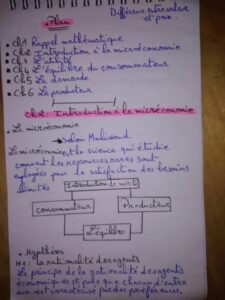 Plan
Différence entre valeur
et prix.
• Ch1 Rappel mathématique
• Ch2 Introduction à la microéconomie
• Ch3 L'utilité
• Ch4 L'équilibre du consommateur
• Ch5 La demande
• Ch6 Le producteur
Ch2: Introduction à la microéconomie
• La microéconomie
Selon Malinvaud
La microéconomie est la science qui étudie
comment les ressources rares sont
employées pour la satisfaction des besoins
illimités
Introduction de
Consommateur
Producteur
L'équilibre
• Hypothèses
H1: la rationalité des agents
Le principe de la rationalité des agents
économiques stipule que chacun d'entre
eux est caractérisé par des préférences.